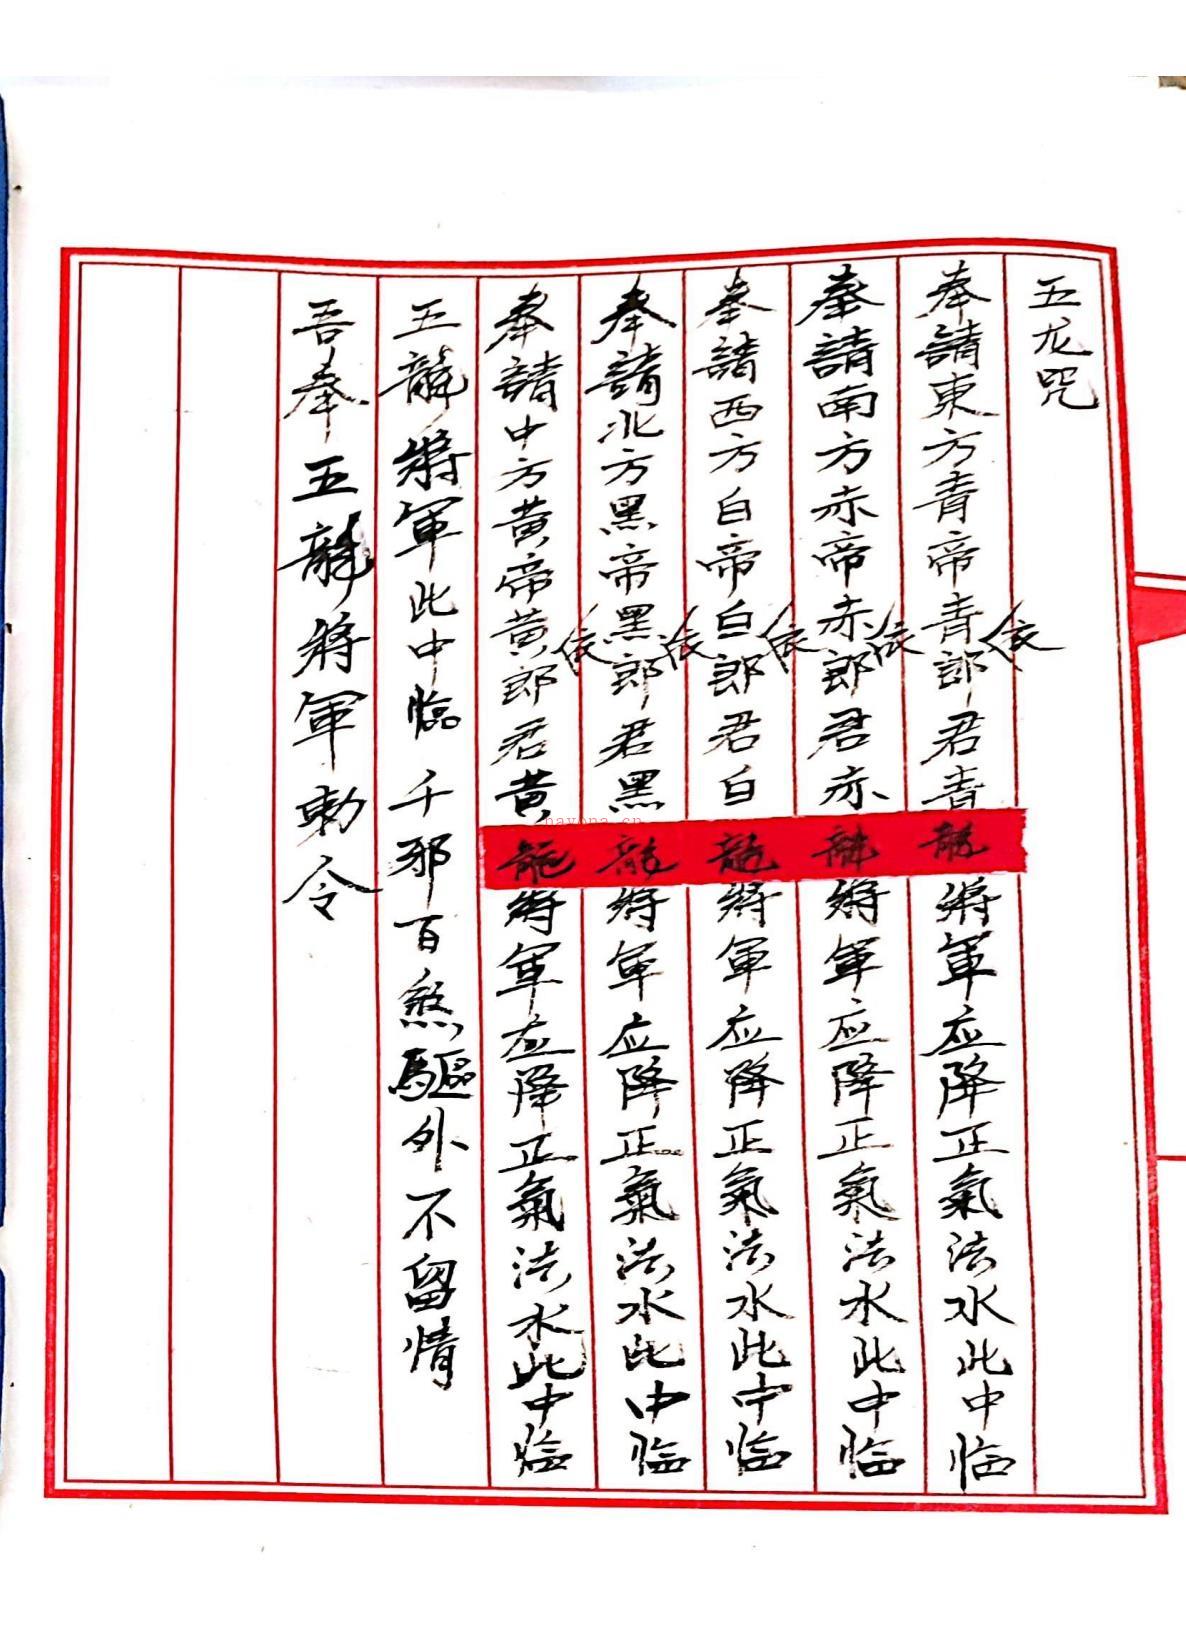 五龙咒
奉請東方青帝青郎君青龍將軍应降正氣法水此中临
奉請南方赤帝赤郎君赤龍將軍应降正氣法水此中临
奉請西方白帝白郎君白龍將軍应降正氣法水此中临
奉請北方黑帝黑郎君黑龍將軍应降正氣法水此中临
奉請中方黄帝黄郎君黄龍將軍应降正氣法水此中临
五龍將軍此中临千邪百煞驅外不留情
吾奉五龍將軍勅令
nayona.cn